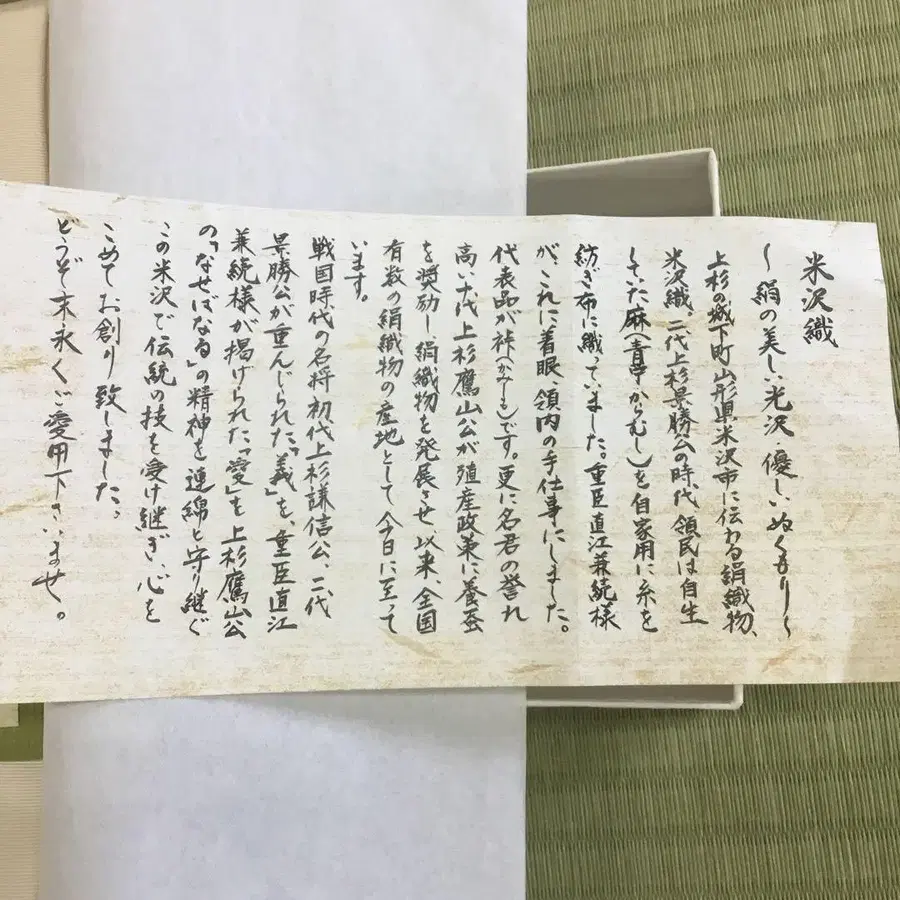 米沢織
〜絹の美しい光沢・優しいぬくもり〜
上杉の城下町山形県米沢市に伝わる絹織物、
米沢織。二代上杉景勝公の時代、領民は自生
していた麻(青苧からむし)を自家用に糸を
紡ぎ布に織っていました。重臣直江兼続様
が、これに着眼、領内の手仕事にしました。
代表品が裃(かみしも)です。更に名君の誉れ
高い十代上杉鷹山公が殖産政策に養蚕
を奨励し、絹織物を発展させ、以来、全国
有数の絹織物の産地として今日に至って
います。
戦国時代の名将初代上杉謙信公、二代
景勝公が重んじられた、「義」を、重臣直江
兼続様が掲げられた、「愛」を上杉鷹山公
の「なせばなる」の精神を連綿と守り継ぐ
この米沢で伝統の技を受け継ぎ、心を
こめてお創り致しました。
どうぞ末永くご愛用下さいませ。